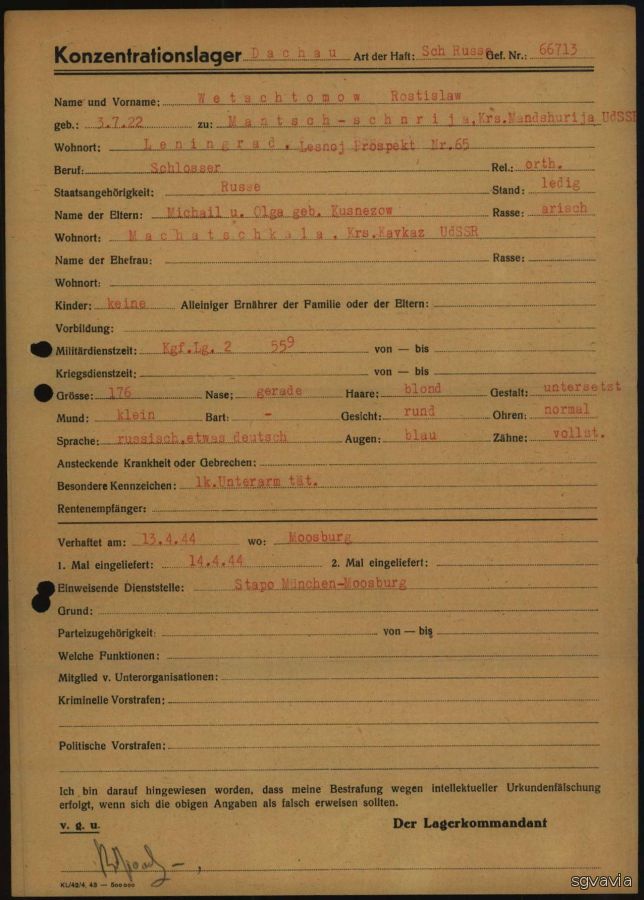 Konzentrationslager Dachau Art der Haft: Sch Russe Gef. Nr.: 66713
Name und Vorname: Wetschtomow Rostislaw
geb.: 3.7.22 zu: Mantsch-schnrija, Krs. Mandshurija UdSSR
Wohnort: Leningrad, Lesnoj Prospekt Nr. 65
Beruf: Schlosser Rel.: orth.
Staatsangehörigkeit: Russe Stand: ledig
Name der Eltern: Michail u. Olga geb. Kusnezow Rasse: arisch
Wohnort: Machatschkala, Krs. Kavkaz UdSSR
Name der Ehefrau: Rasse:
Wohnort:
Kinder: keine Alleiniger Ernährer der Familie oder der Eltern:
Vorbildung:
Militärdienstzeit: Kgf.Lg. 2 559 von — bis
Kriegsdienstzeit: von — bis
Grösse: 176 Nase: gerade Haare: blond Gestalt: untersetzt
Mund: klein Bart: - Gesicht: rund Ohren: normal
Sprache: russisch, etwas deutsch Augen: blau Zähne: vollst.
Ansteckende Krankheit oder Gebrechen:
Besondere Kennzeichen: lk. Unterarm tät.
Rentenempfänger:
Verhaftet am: 13.4.44 wo: Moosburg
1. Mal eingeliefert: 14.4.44 2. Mal eingeliefert:
Einweisende Dienststelle: Stapo München-Moosburg
Grund:
Parteizugehörigkeit: von — bis
Welche Funktionen:
Mitglied v. Unterorganisationen:
Kriminelle Vorstrafen:
Politische Vorstrafen:
Ich bin darauf hingewiesen worden, dass meine Bestrafung wegen intellektueller Urkundenfälschung
erfolgt, wenn sich die obigen Angaben als falsch erweisen sollten.
v. g. u. Der Lagerkommandant
KL/42/4. 43 — 500 000
sgvavia